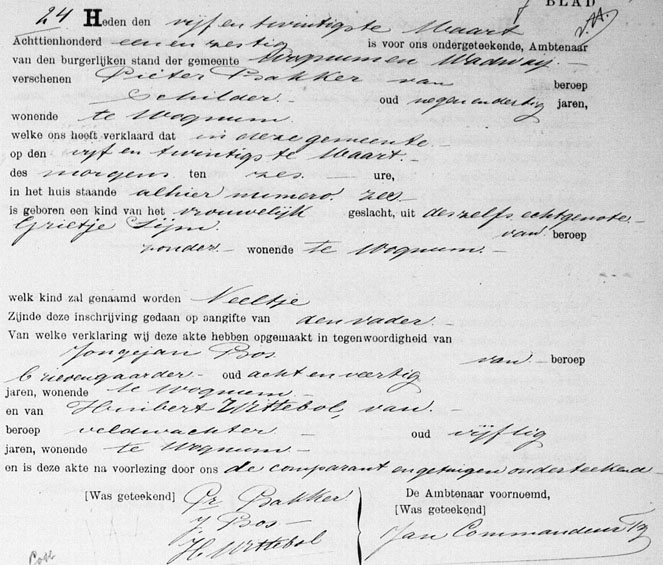 BLAD
24 Heden den vijf en twintigste Maart
Achttienhonderd een en zestig is voor ons ondergeteekende, Ambtenaar
van den burgerlijken stand der gemeente Wognum en Wadway
verschenen Pieter Bakker van beroep
Schilder oud negen en dertig jaren,
wonende te Wognum
welke ons heeft verklaard dat in deze gemeente
op den vijf en twintigste Maart
des morgens ten zes ure,
in het huis staande alhier numero zes
is geboren een kind van het vrouwelijk geslacht, uit deszelfs echtgenote
Grietje Sijm van beroep
zonder wonende te Wognum
welk kind zal genaamd worden Neeltje
Zijnde deze inschrijving gedaan op aangifte van den vader
Van welke verklaring wij deze akte hebben opgemaakt in tegenwoordigheid van
Jongejan Bos van beroep
oud acht en veertig
jaren, wonende te Wognum
en van Huibert Wittebol, van
beroep veldwachter oud vijftig
jaren, wonende te Wognum
en is deze akte na voorlezing door ons de comparant en getuigen onderteekend
[Was geteekend] Pr Bakker
J Bos
H. Wittebol
De Ambtenaar voornoemd,
[Was geteekend]
Jan Commandeur